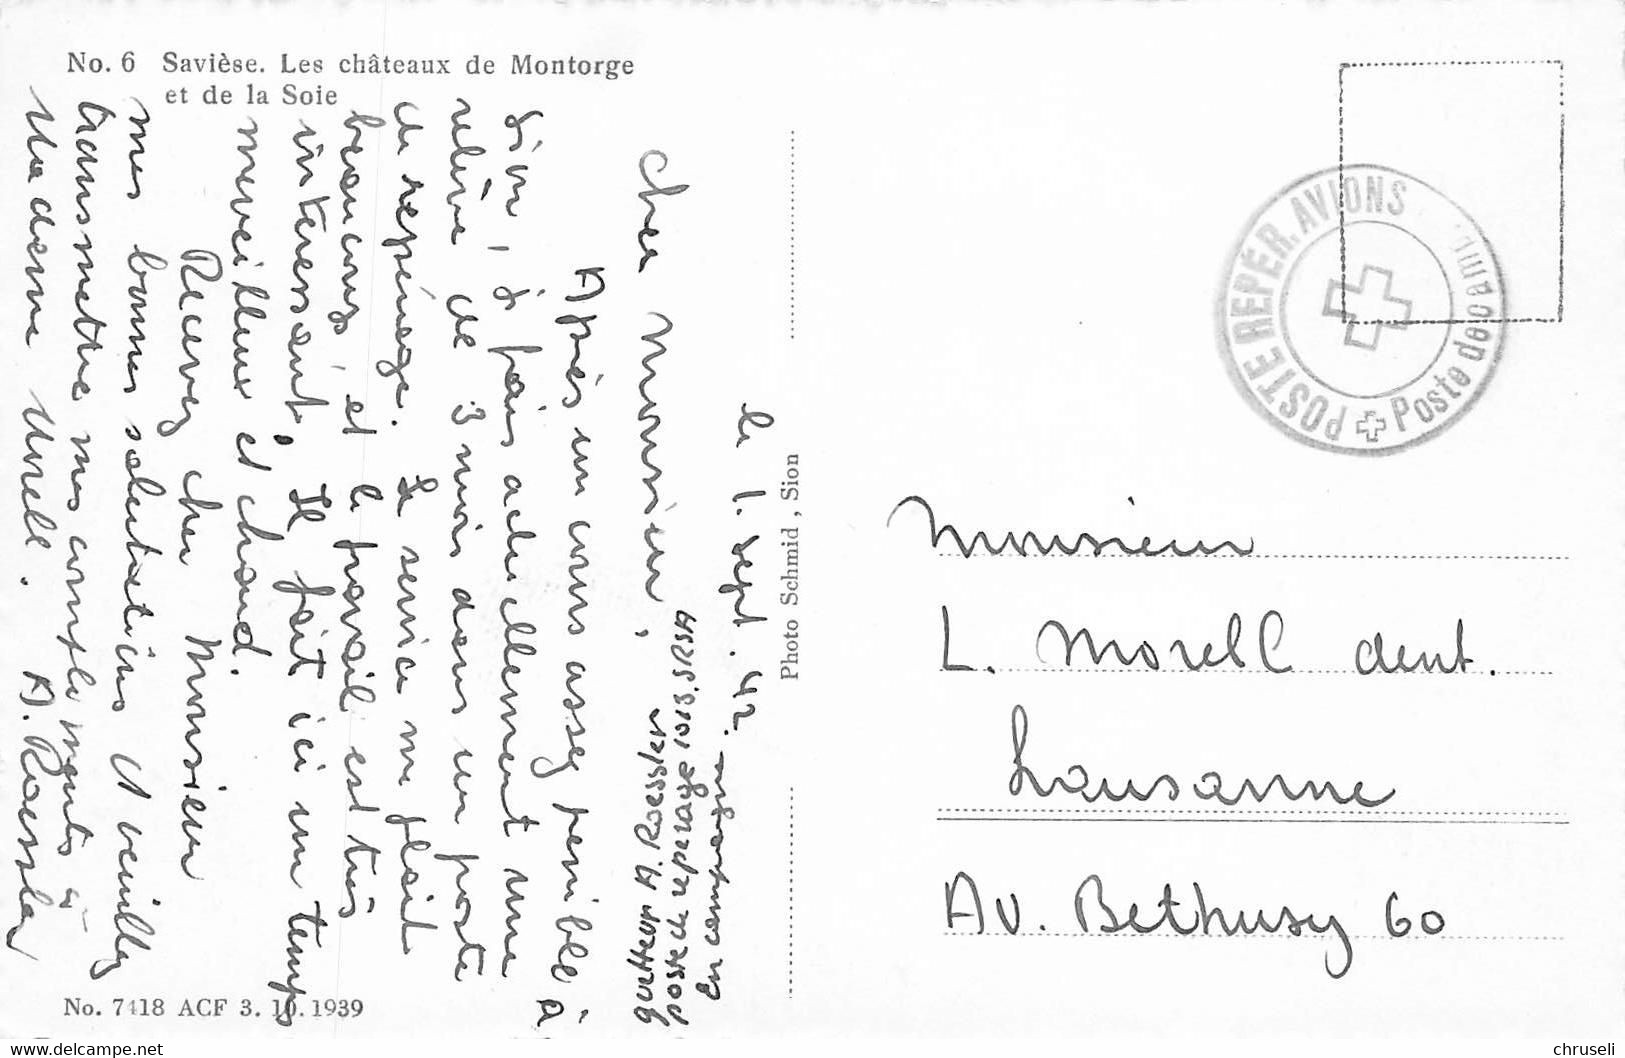 No. 6 Savièse. Les châteaux de Montorge
et de la Soie
le 1. sept. 42.
Cher Monsieur,
Après un cours assez pénible à
Sion, je fais actuellement une
relève de 3 mois dans un poste
de repérage. Le service me plaît
beaucoup, et le travail est très
intéressant. Il fait ici un temps
merveilleux et chaud.
Recevez cher Monsieur
mes bonnes salutations et veuillez
transmettre mes compliments à
Madame Morell. A. Roessler
A. Roessler
poste de repérage
en campagne
Photo Schmid, Sion
No. 7418 ACF 3. 10. 1939
POSTE REPÉR. AVIONS
Poste de camp.
Monsieur
L. Morell dent.
Lausanne
Av. Bethusy 60
www.delcampe.net
chruseli